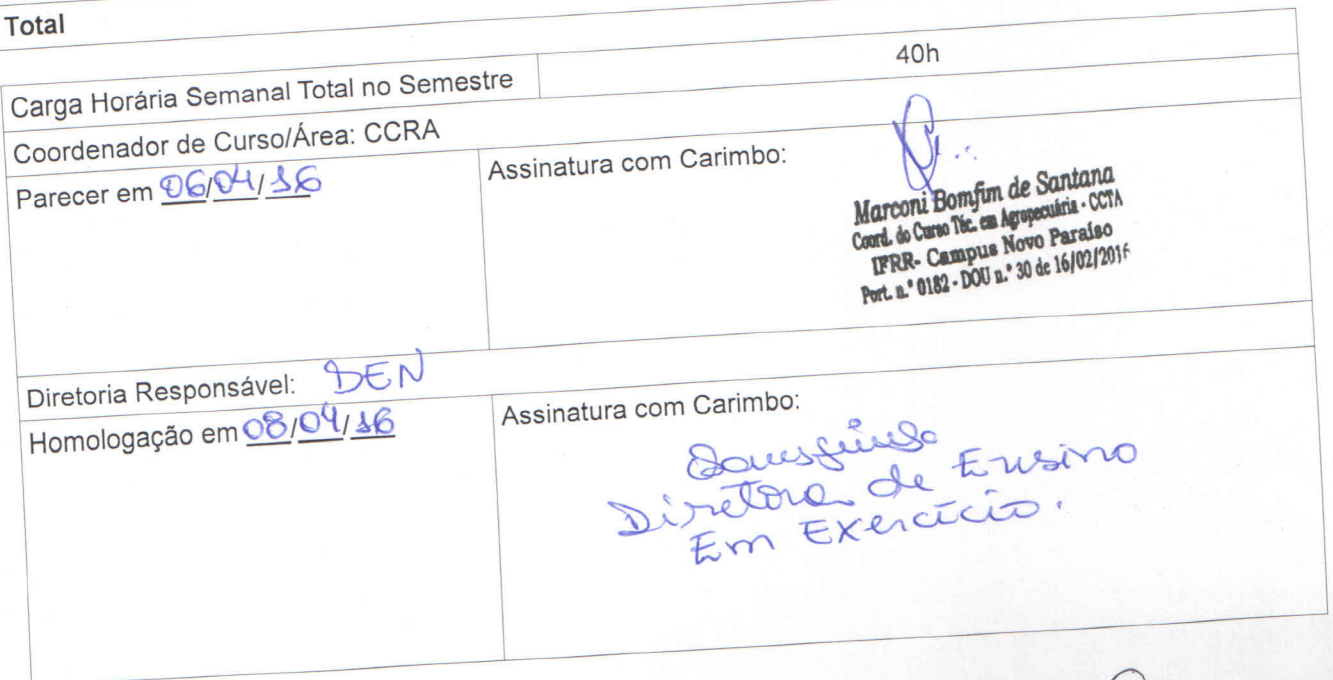 Total
Carga Horária Semanal Total no Semestre 40h
Coordenador de Curso/Área: CCRA
Parecer em 06/04/16 Assinatura com Carimbo:
Marconi Bomfim de Santana
Coord. do Curso Téc. em Agropecuária - CCTA
IFRR- Campus Novo Paraíso
Port. n.º 0182 - DOU n.º 30 de 16/02/2016
Diretoria Responsável: DEN
Homologação em 08/04/16 Assinatura com Carimbo:
Diretora de Ensino
Em Exercício.